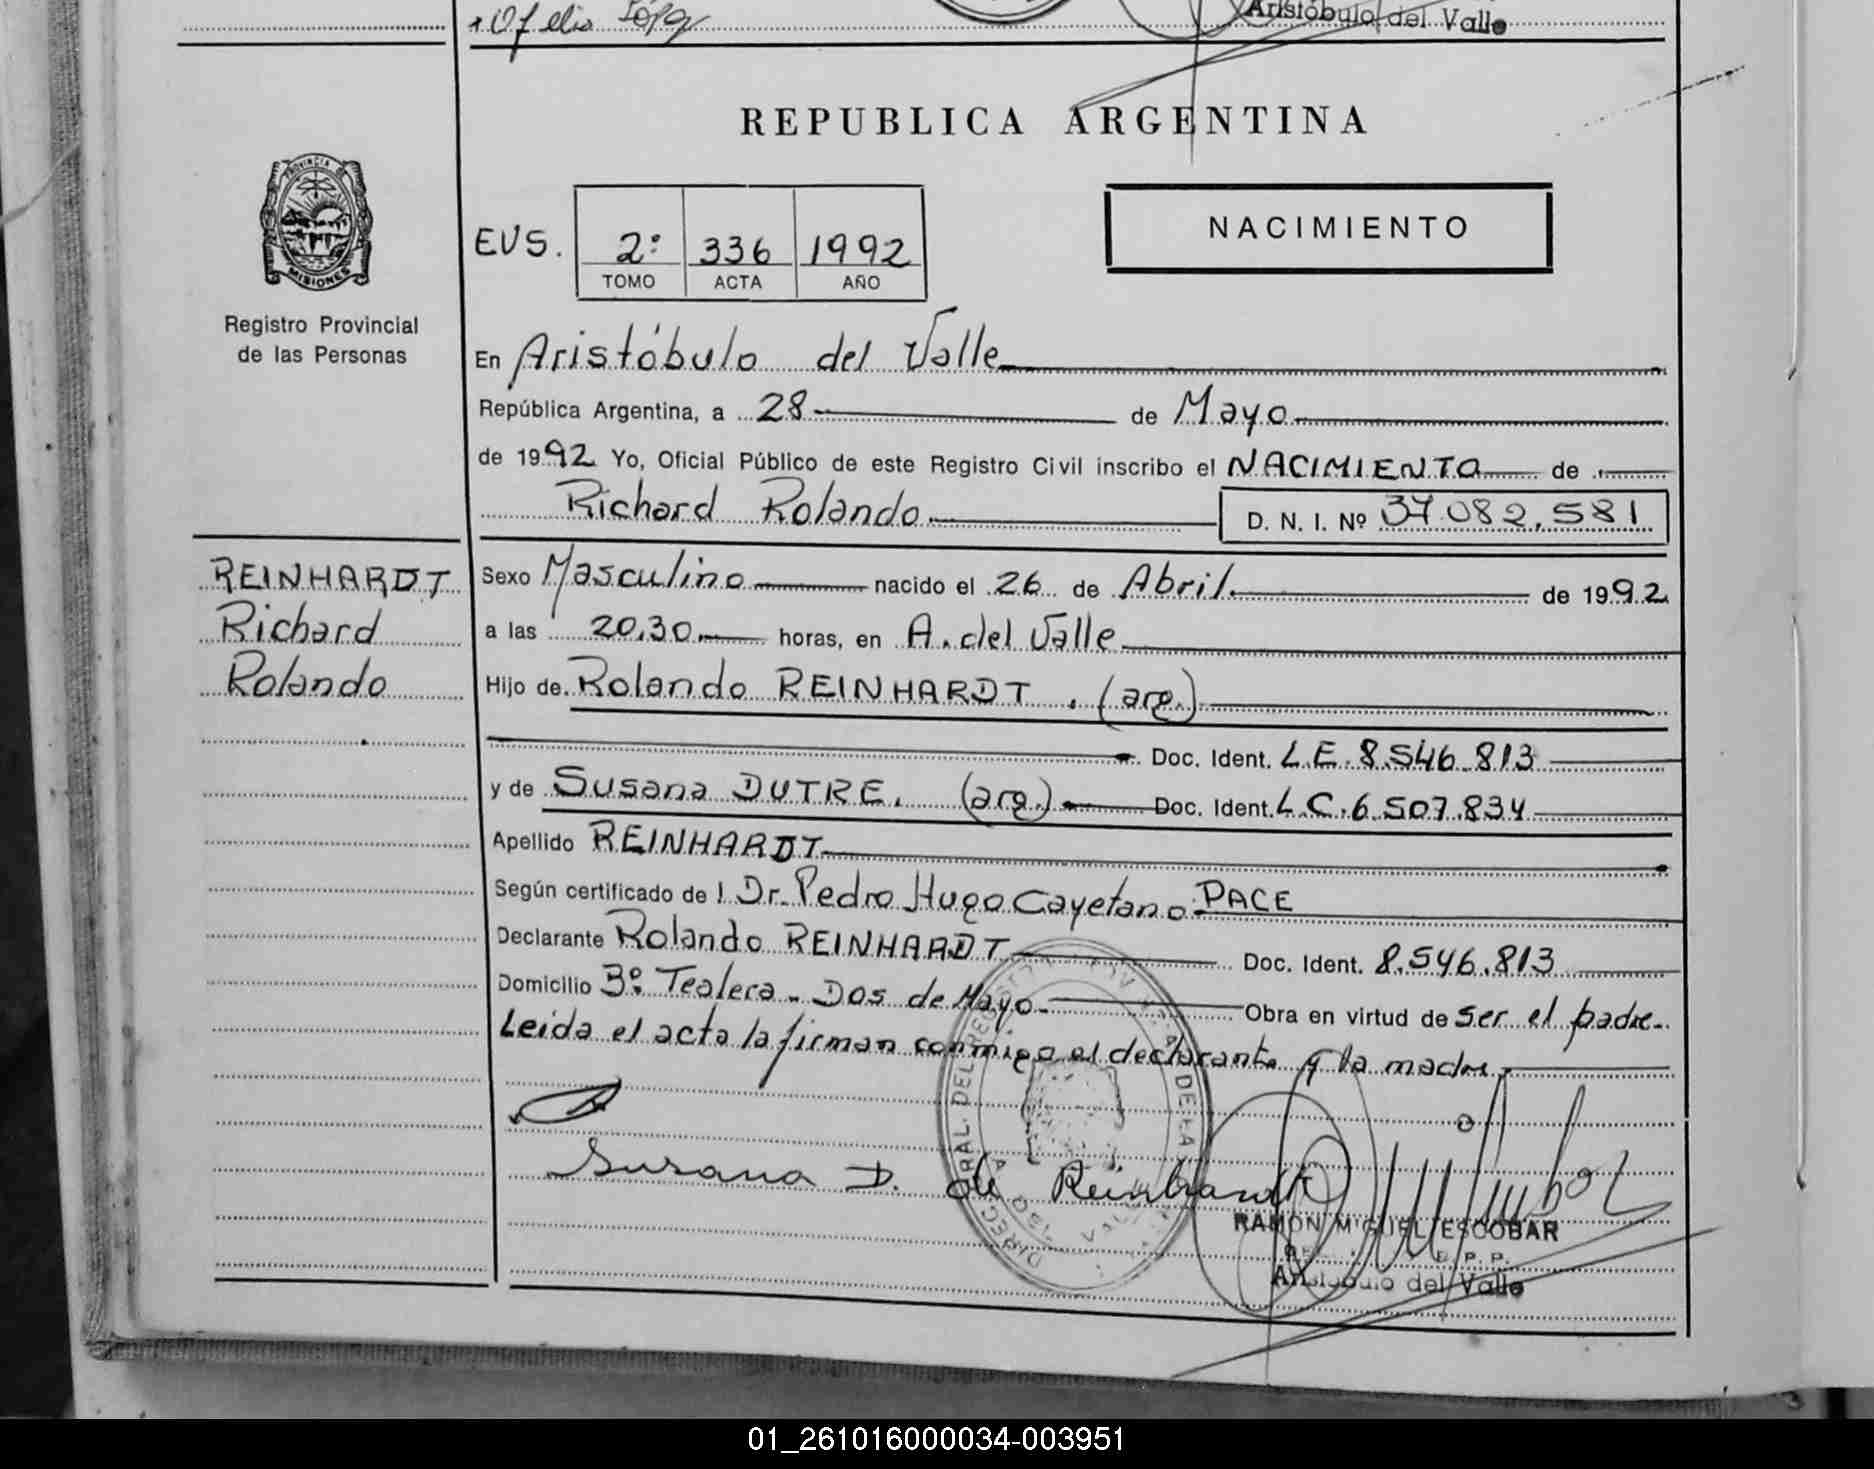 Ofelia
Aristóbulo del Valle
REPUBLICA ARGENTINA
PROVINCIA DE
MISIONES
Registro Provincial
de las Personas
EVS.
2º 336 1992
TOMO ACTA AÑO
NACIMIENTO
En Aristóbulo del Valle
República Argentina, a 28 de Mayo
de 1992 Yo, Oficial Público de este Registro Civil inscribo el NACIMIENTO de
Richard Rolando D. N. I. Nº 37.082.581
REINHARDT
Richard
Rolando
Sexo Masculino nacido el 26 de Abril. de 1992
a las 20.30 horas, en A. del Valle
Hijo de Rolando REINHARDT. (arg.)
Doc. Ident. L.E. 8.546.813
y de Susana DUTRE. (arg.) Doc. Ident. L.C. 6.507.834
Apellido REINHARDT
Según certificado de l Dr. Pedro Hugo Cayetano PACE
Declarante Rolando REINHARDT Doc. Ident. 8.546.813
Domicilio 3º Tealera - Dos de Mayo Obra en virtud de ser el padre.
Leida el acta la firman conmigo el declarante y la madre
Susana D. de Reinhardt
RAMON MIGUEL ESCOBAR
Aristóbulo del Valle
01_261016000034-003951